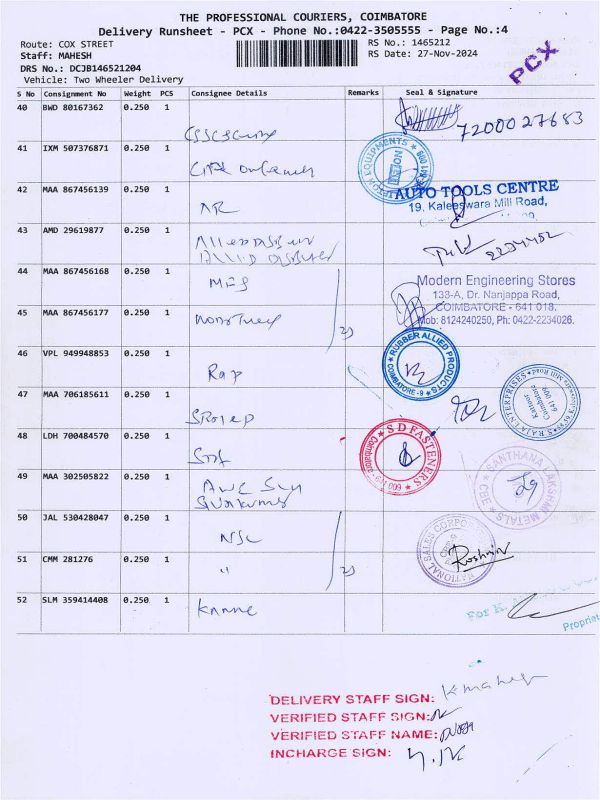 THE PROFESSIONAL COURIERS, COIMBATORE
Delivery Runsheet - PCX - Phone No.:0422-3505555 - Page No.:4
Route: COX STREET RS No.: 1465212
Staff: MAHESH RS Date: 27-Nov-2024
DRS No.: DCJB146521204
Vehicle: Two Wheeler Delivery
PCX
S No Consignment No Weight PCS Consignee Details Remarks Seal & Signature
40 BWD 80167362 0.250 1
7200027683
41 IXM 507376871 0.250 1
42 MAA 867456139 0.250 1
AUTO TOOLS CENTRE
19, Kaleeswara Mill Road,
43 AMD 29619877 0.250 1
44 MAA 867456168 0.250 1 MES
Modern Engineering Stores
133-A, Dr. Nanjappa Road,
COIMBATORE - 641 018.
Mob: 8124240250, Ph: 0422-2234026.
45 MAA 867456177 0.250 1
46 VPL 949948853 0.250 1 Rap
RUBBER ALLIED PRODUCTS
COIMBATORE - 9
47 MAA 706185611 0.250 1
S. RAJA ENTERPRISES
Kattoor
Coimbatore
641 009
48 LDH 700484570 0.250 1
S D FASTENERS
Coimbatore
49 MAA 302505822 0.250 1
Sivakumar
SANTHANA LAKSHMI METALS
CBE
50 JAL 530428047 0.250 1 NSC
NATIONAL SALES CORPORATION
51 CMM 281276 0.250 1 "
Roshni
52 SLM 359414408 0.250 1
For K.
Propriet
DELIVERY STAFF SIGN: K. Mahesh
VERIFIED STAFF SIGN:
VERIFIED STAFF NAME:
INCHARGE SIGN: